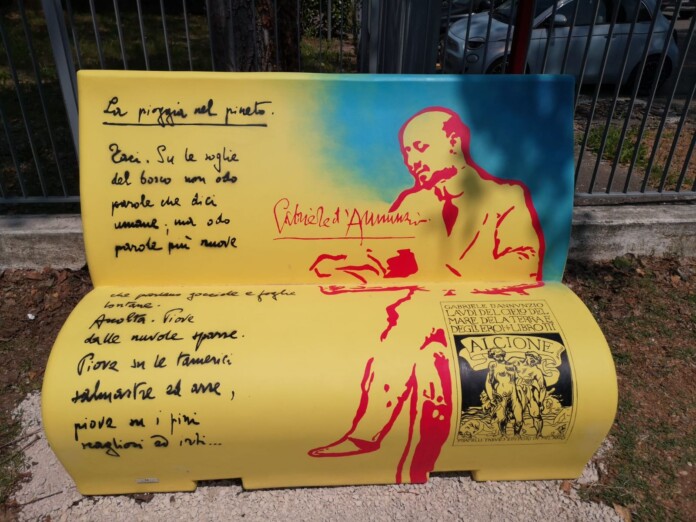 La pioggia nel pineto.
Taci. Su le soglie
del bosco non odo
parole che dici
umane; ma odo
parole più nuove
che parlano gocciole e foglie
lontane.
Ascolta. Piove
dalle nuvole sparse.
Piove su le tamerici
salmastre ed arse,
piove su i pini
scagliosi ed irti...
Gabriele d'Annunzio
GABRIELE D'ANNVNZIO
LAVDI DEL CIELO DEL
MARE DELA TERRA E
DEGLI EROI LIBRO III
ALCIONE